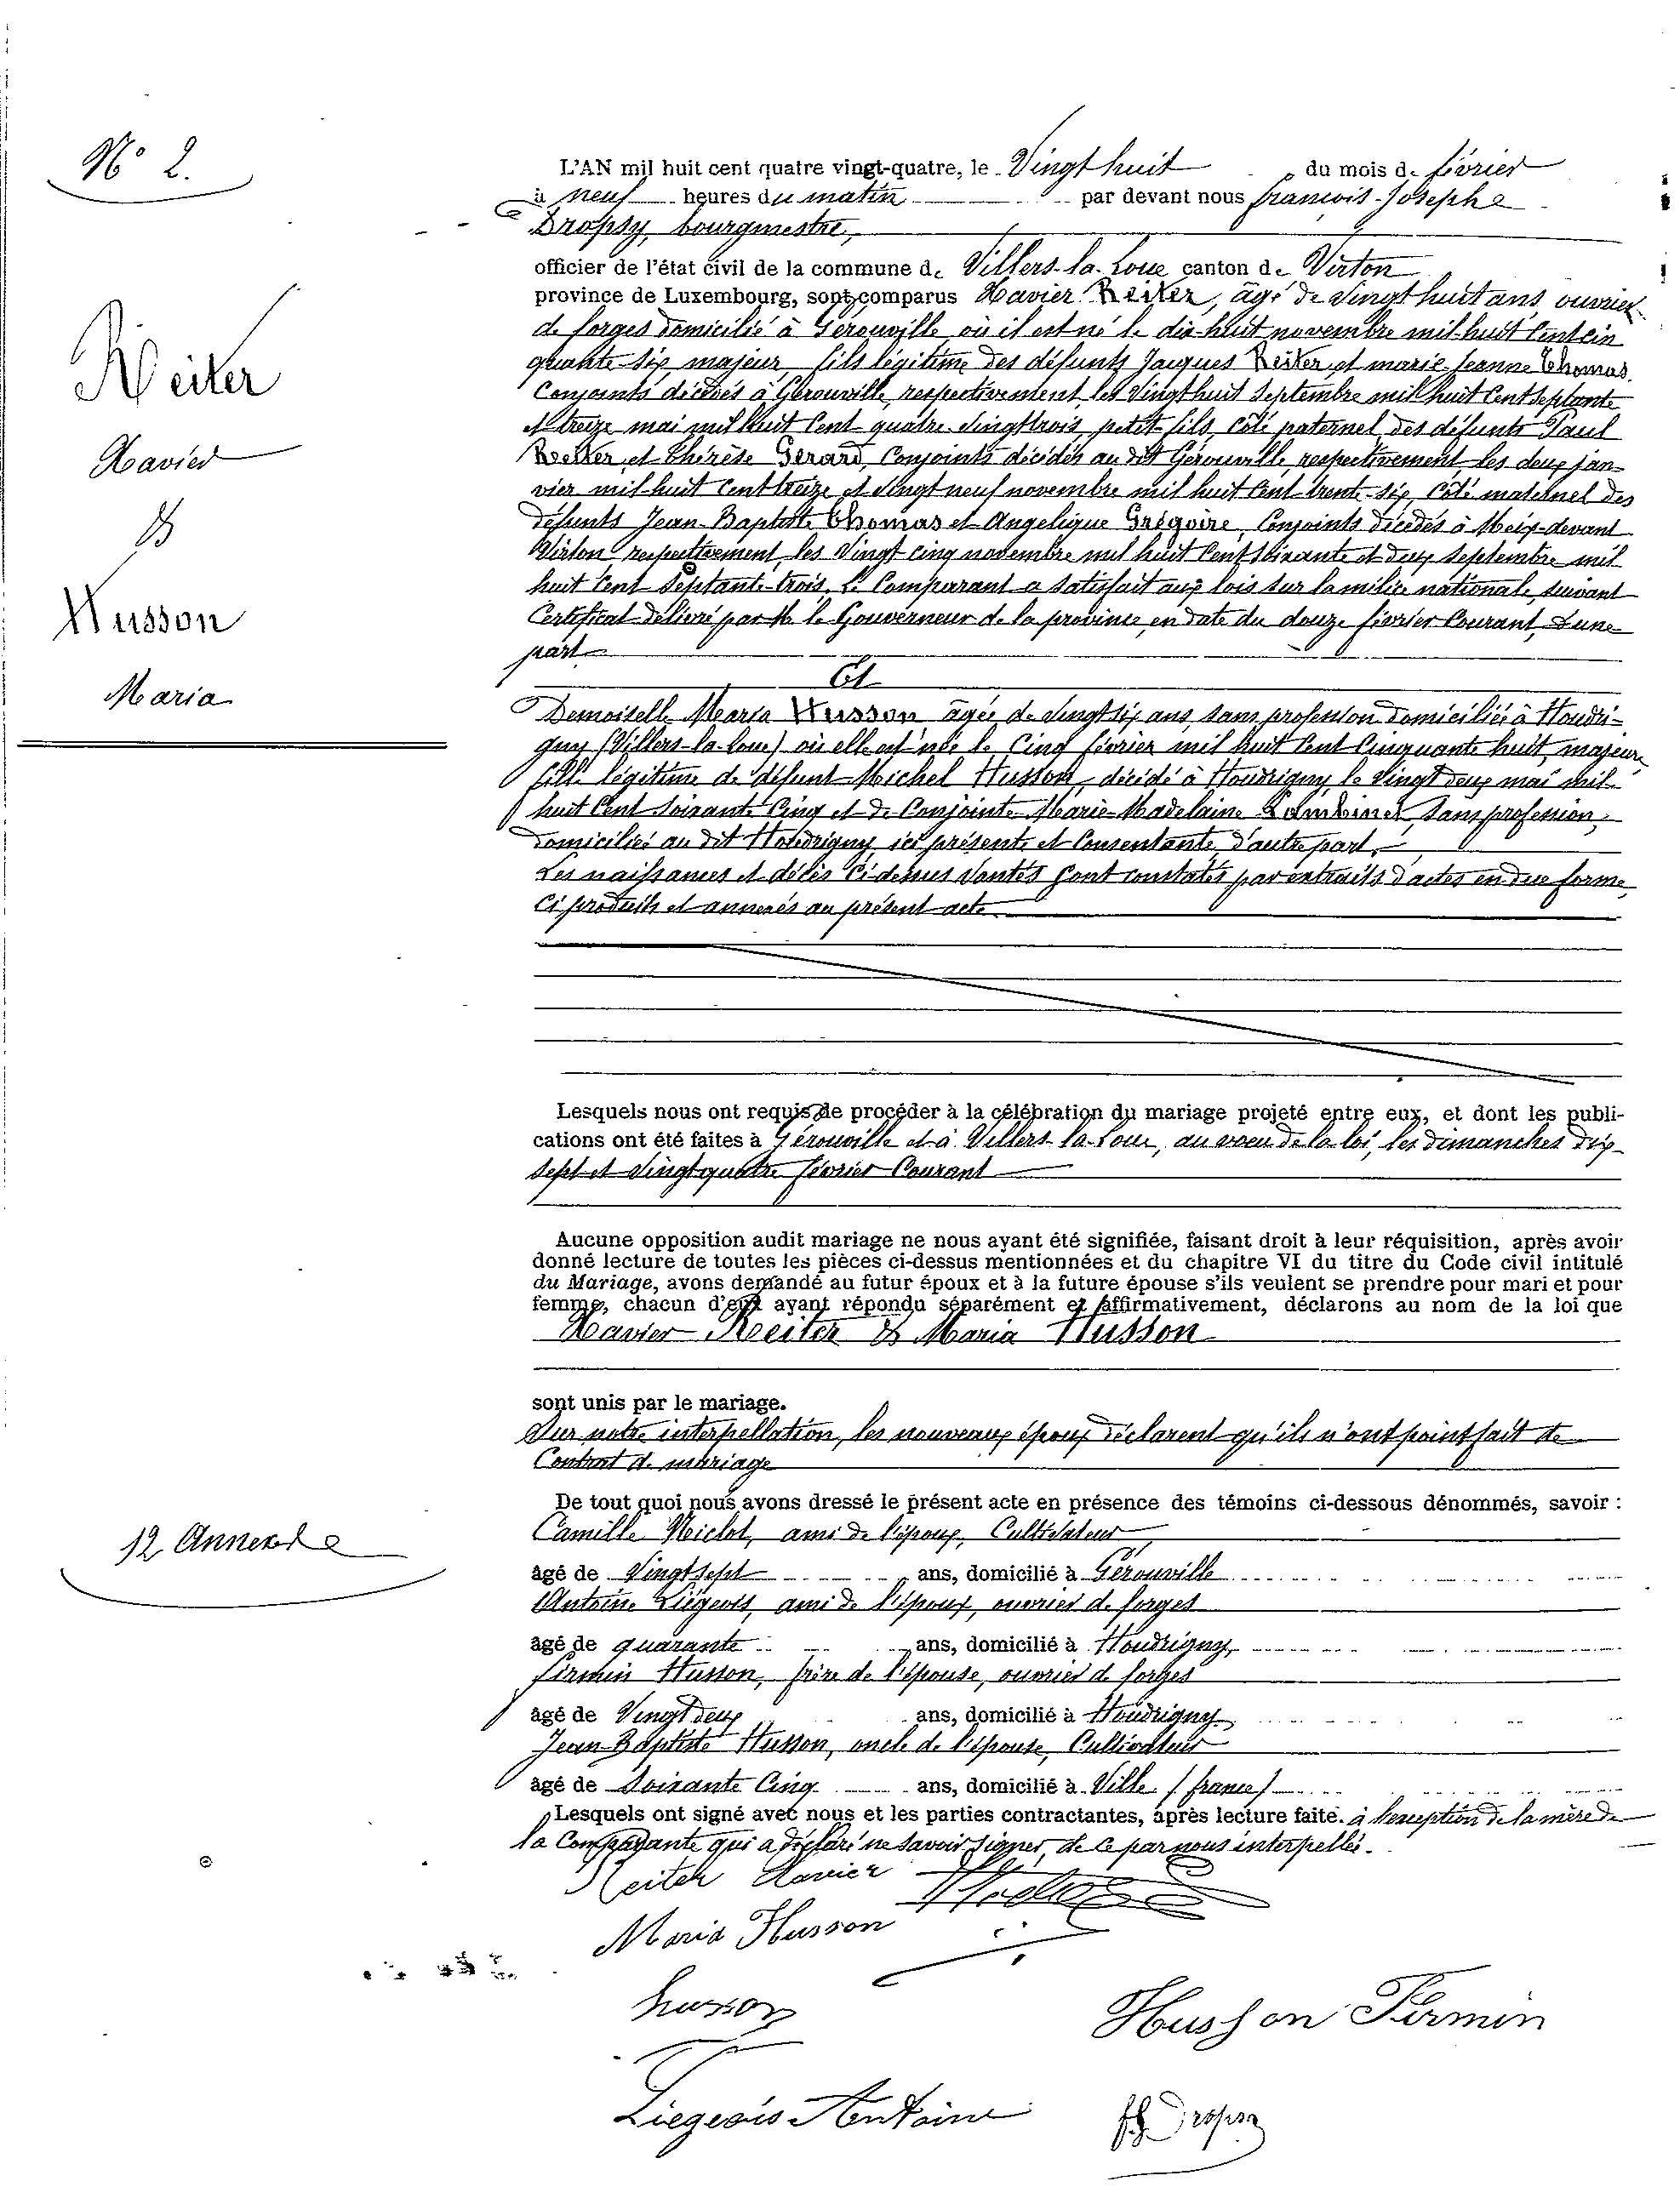 N° 2.
Reiter
Xavier
&
Husson
Maria
L'AN mil huit cent quatre vingt-quatre, le Vingt huit du mois de février
à neuf heures du matin par devant nous françois-Josephe
Dropsy, bourgmestre,
officier de l'état civil de la commune de Villers-la-Loue canton de Virton
province de Luxembourg, sont comparus Xavier Reiter, âgé de Vingt huit ans, ouvrier
de forges domicilié à Gérouville où il est né le dix-huit novembre mil-huit Cent cin
quante-six majeur, fils légitime des défunts Jacques Reiter et marie-Jeanne Thomas,
Conjoints décédés à Gérouville, respectivement les Vingt huit Septembre mil huit Cent septante
et treize mai mil huit Cent quatre-Vingt trois, petit-fils, côté paternel des défunts Paul
Reiter et Thérèse Gerard, Conjoints décédés au dit Gérouville respectivement les deux jan-
vier mil huit Cent treize et Vingt neuf novembre mil huit Cent trente-six, Côté maternel des
défunts Jean-Baptiste Thomas et Angelique Grégoire, Conjoints décédés à Meix-devant
Virton respectivement les Vingt cinq novembre mil huit Cent soixante et deux septembre mil
huit Cent Septante-trois. Le Comparant a satisfait aux lois sur la milice nationale, suivant
Certificat délivré par M. le Gouverneur de la province en date du douze février Courant, D'une
part
Et
Demoiselle Maria Husson âgée de Vingt six ans, sans profession domiciliée à Houdri-
gny (Villers-la-Loue) où elle est née le Cinq février mil huit Cent Cinquante huit, majeure,
fille légitime de défunt Michel Husson, décédé à Houdrigny le Vingt deux mai mil-
huit Cent soixante Cinq et de Conjointe Marie-Madelaine Lambinet, Sans profession,
domiciliée au dit Houdrigny ici présente et Consentante, d'autre part,
Les naissances et décès Ci-dessus Vantés sont constatés par extraits d'actes en due forme
Ci produits et annexés au présent acte
Lesquels nous ont requis de procéder à la célébration du mariage projeté entre eux, et dont les publi-
cations ont été faites à Gérouville et à Villers-la-Loue, au vœu de la loi, les Dimanches Dix-
sept et Vingt quatre février Courant
Aucune opposition audit mariage ne nous ayant été signifiée, faisant droit à leur réquisition, après avoir
donné lecture de toutes les pièces ci-dessus mentionnées et du chapitre VI du titre du Code civil intitulé
du Mariage, avons demandé au futur époux et à la future épouse s'ils veulent se prendre pour mari et pour
femme, chacun d'eux ayant répondu séparément et affirmativement, déclarons au nom de la loi que
Xavier Reiter & Maria Husson
sont unis par le mariage.
Sur notre interpellation, les nouveaux époux déclarent qu'ils n'ont point fait de
Contrat de mariage
De tout quoi nous avons dressé le présent acte en présence des témoins ci-dessous dénommés, savoir :
12 Annexes
Camille Niclot, ami de l'époux, Cultivateur
âgé de Vingt sept ans, domicilié à Gérouville
Antoine Liégeois, ami de l'époux, ouvrier de forges
âgé de quarante ans, domicilié à Houdrigny,
firmin Husson, frère de l'épouse, ouvrier de forges
âgé de Vingt deux ans, domicilié à Houdrigny,
Jean-Baptiste Husson, oncle de l'épouse, Cultivateur
âgé de Soixante Cinq ans, domicilié à Ville (france)
Lesquels ont signé avec nous et les parties contractantes, après lecture faite. à l'exception de la mère de
la Comparante qui a déclaré ne savoir signer, de ce par nous interpellée.
Reiter Xavier
Maria Husson
husson
Husson Firmin
Liegeois Antoine
Dropsy